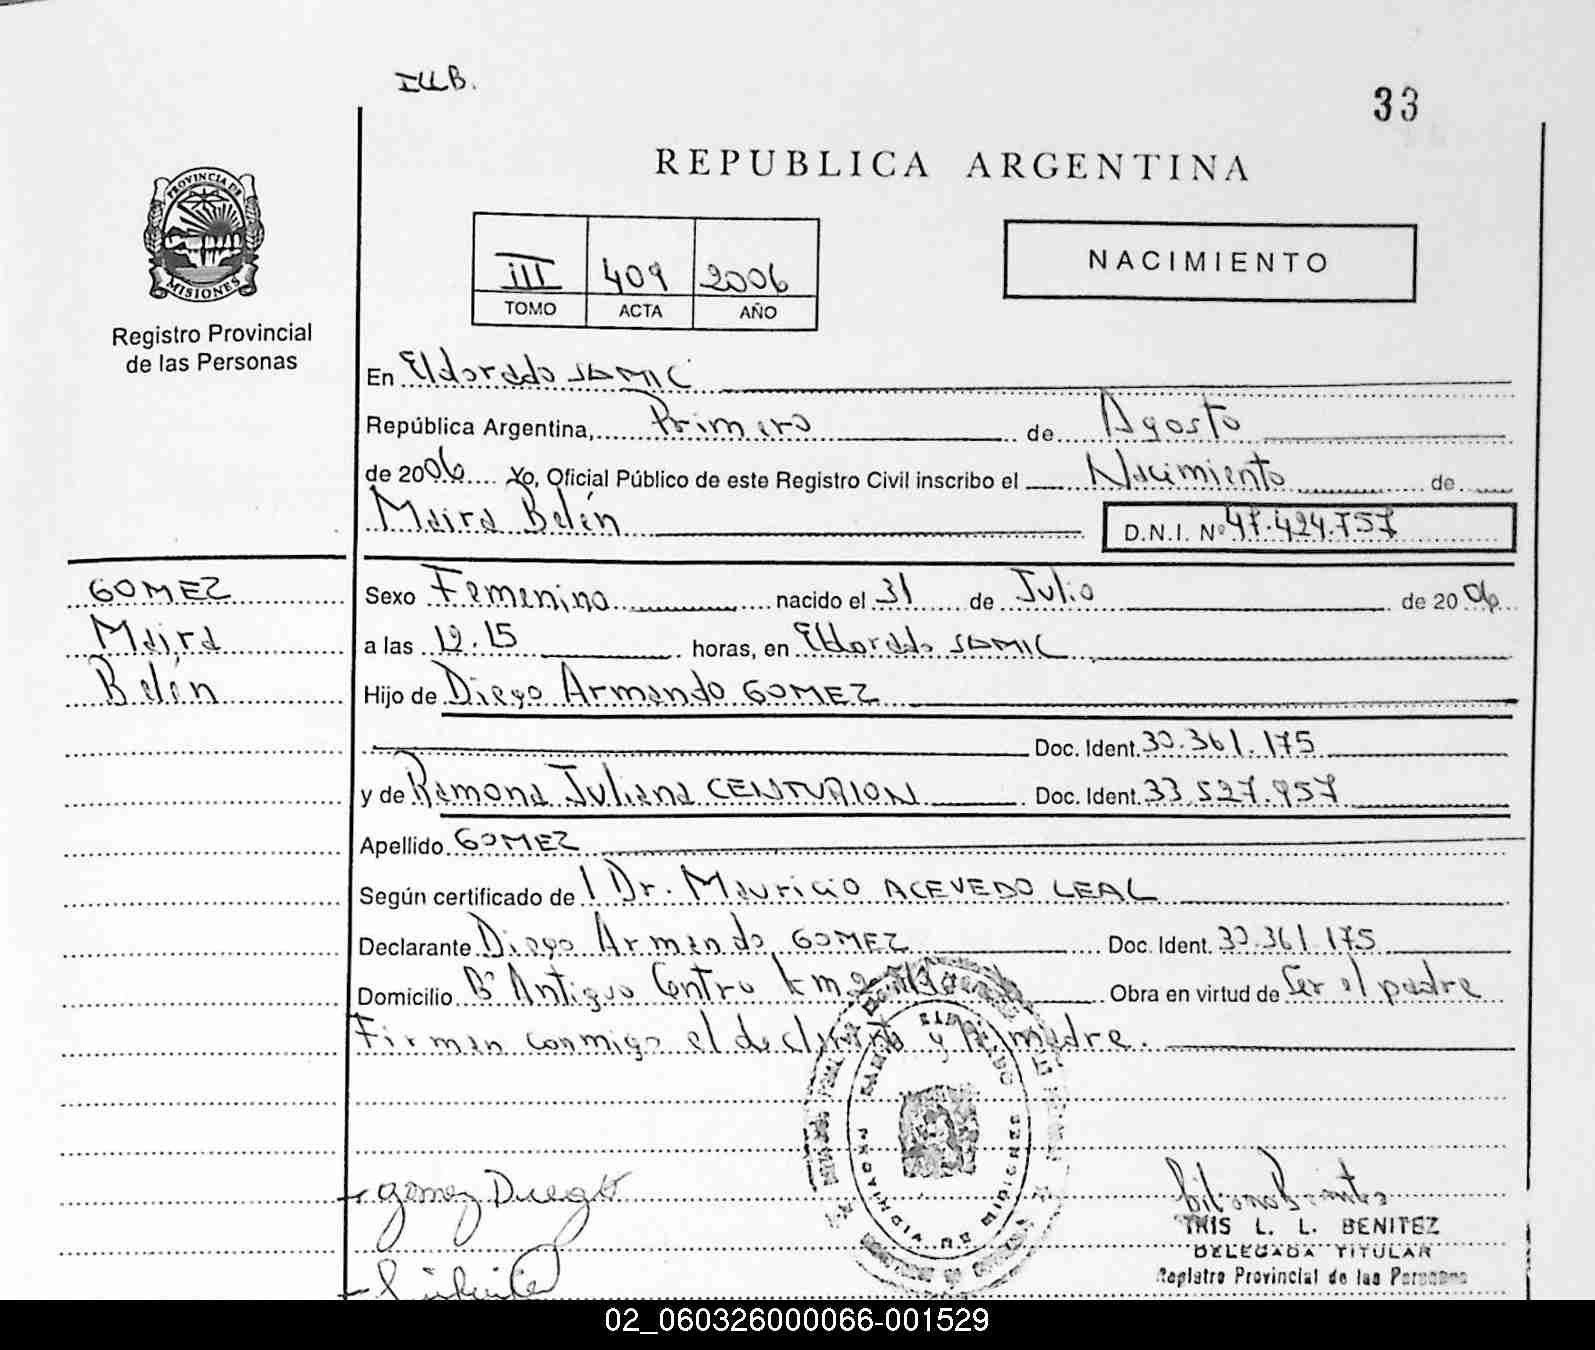 ILLB.
33
REPUBLICA ARGENTINA
PROVINCIA DE
MISIONES
Registro Provincial
de las Personas
III 409 2006
TOMO ACTA AÑO
NACIMIENTO
En Eldorado SAMIC
República Argentina, Primero de Agosto
de 2006 Yo, Oficial Público de este Registro Civil inscribo el Nacimiento de
Maira Belén D.N.I. Nº 47.424.757
GOMEZ
Maira
Belén
Sexo Femenino nacido el 31 de Julio de 2006
a las 12.15 horas, en Eldorado SAMIC
Hijo de Diego Armando GOMEZ
Doc. Ident. 30.361.175
y de Ramona Juliana CENTURION Doc. Ident. 33.527.957
Apellido GOMEZ
Según certificado de l Dr. Mauricio ACEVEDO LEAL
Declarante Diego Armando GOMEZ Doc. Ident. 30.361.175
Domicilio Bº Antiguo Centro km Obra en virtud de Ser el padre
Firman conmigo el declarante y la madre.
Gomez Diego
IRIS L. L. BENITEZ
DELEGADA TITULAR
Registro Provincial de las Personas
02_060326000066-001529